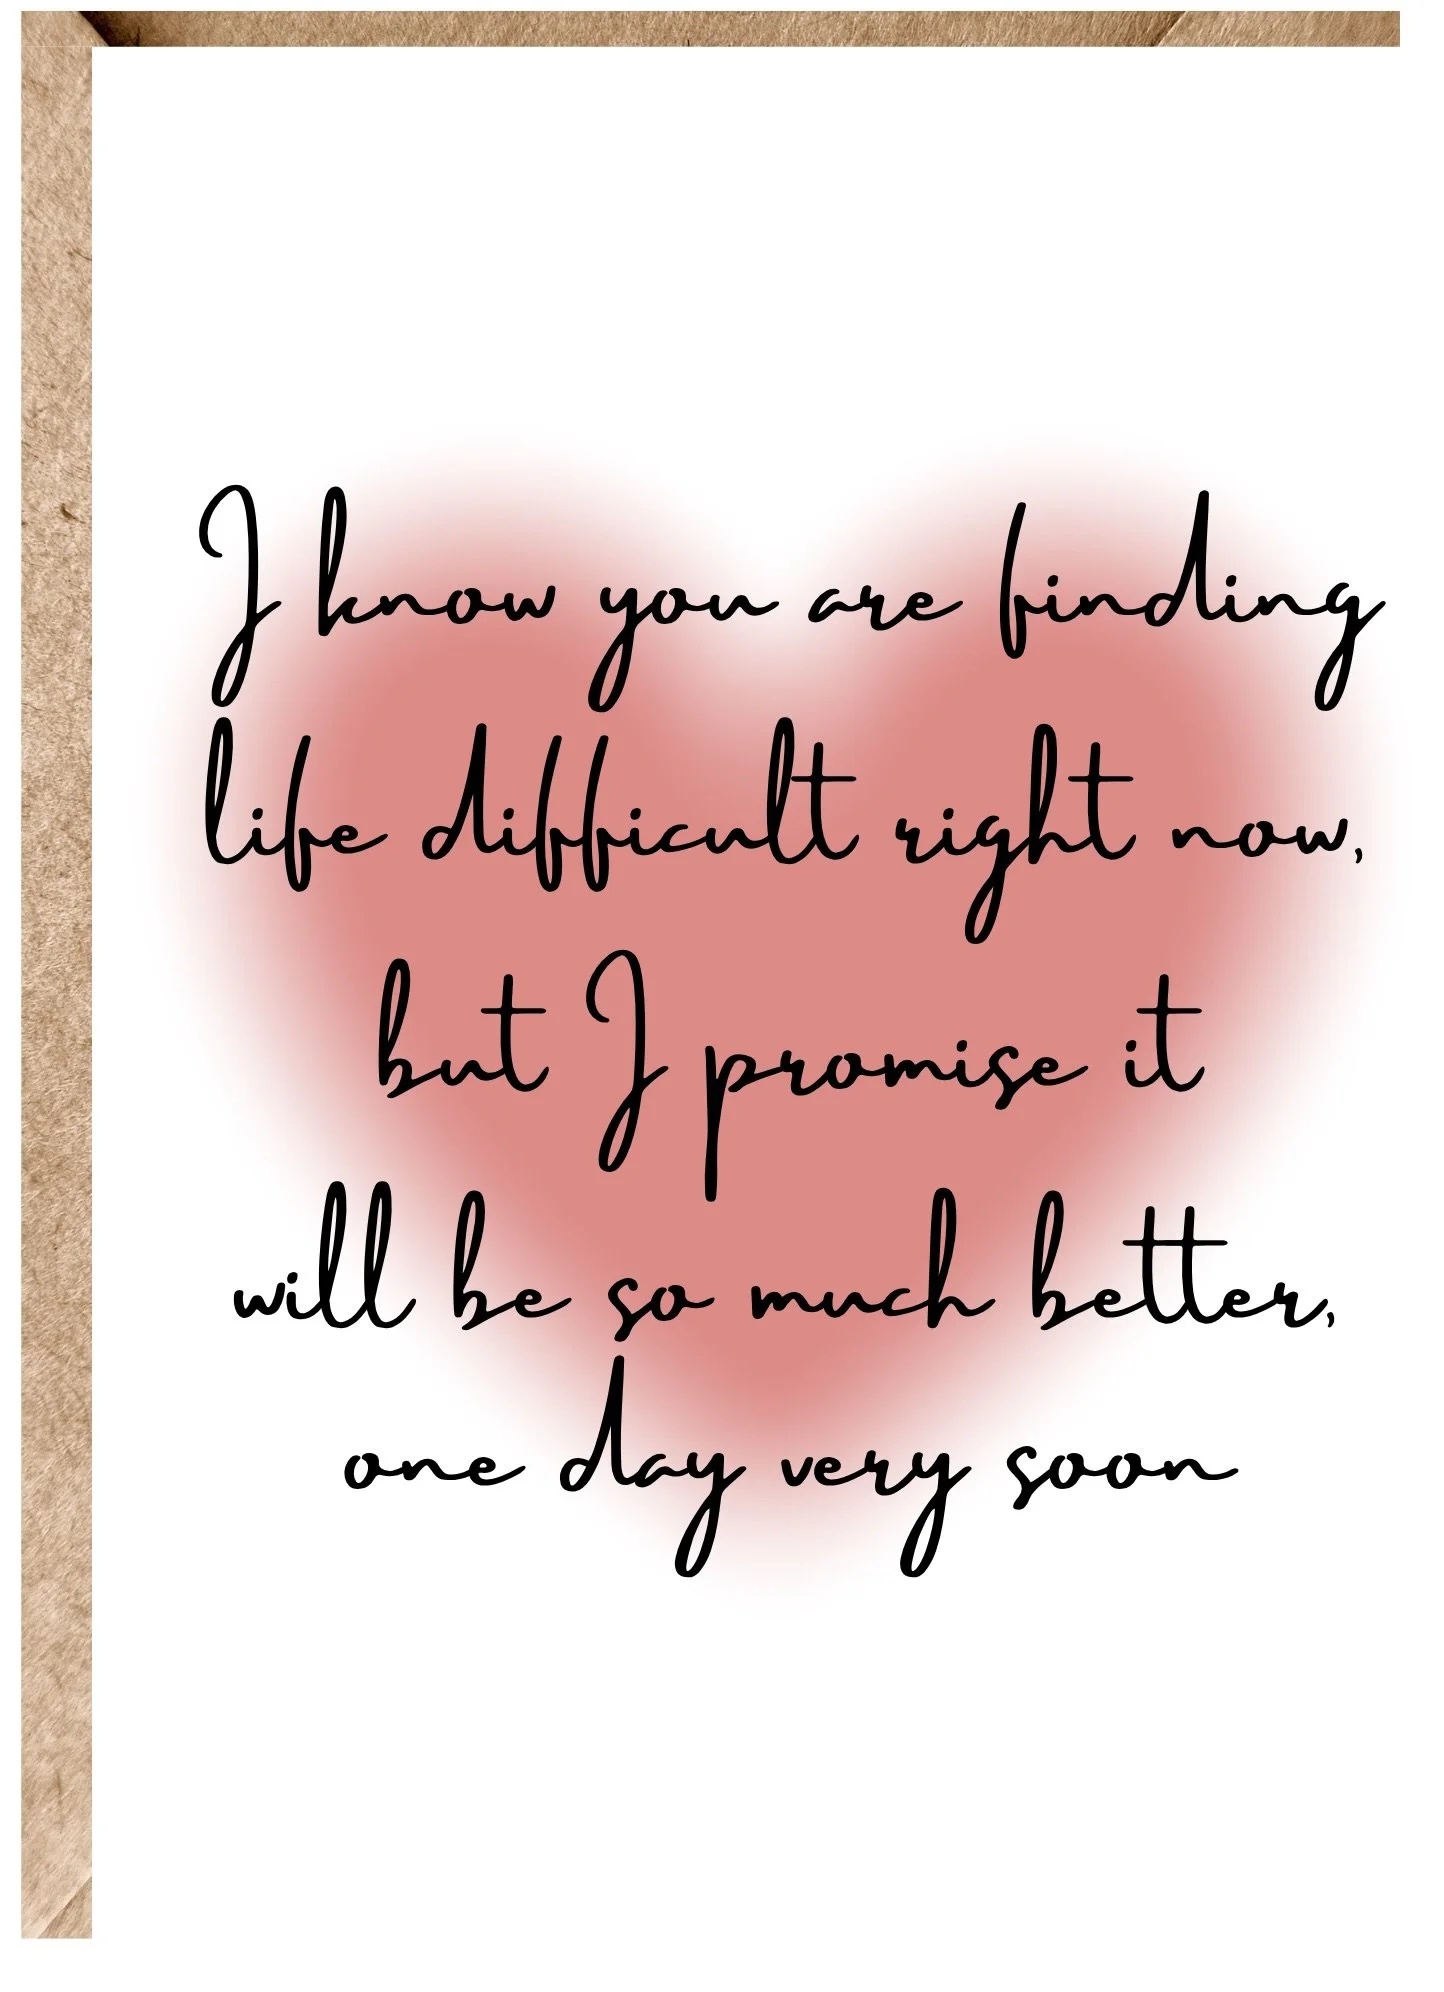 I know you are finding
life difficult right now,
but I promise it
will be so much better,
one day very soon